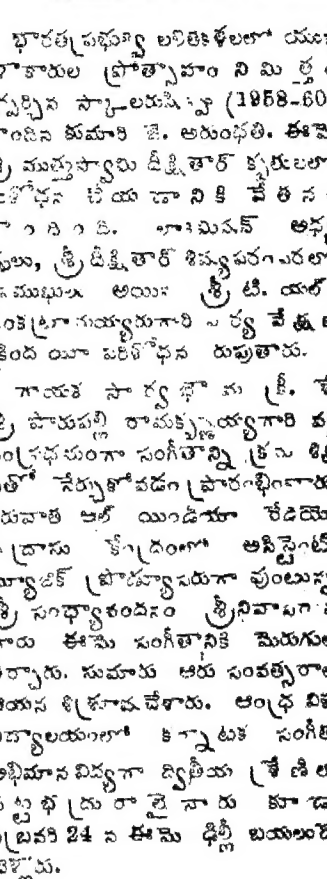 భారత ప్రభుత్వ లలితకళలలో యు
కాకారుల ప్రోత్సాహం నిమిత్త
ర్పర్చిన స్కాలరుషిప్పు (1958-60
పొందిన కుమారి జె. అరుంధతి. ఈమె
ముత్తుస్వామి దీక్షితార్ కృతులలో
శోధన చేయడానికి వేతన
పొందింది.
శ్రీ దీక్షితార్ శిష్యపరంపరలో
ప్రముఖులు అయిన శ్రీ టి. యల్
వెంకట్రామయ్యరుగారి పర్యవేక్షణ
కింద యీ పరిశోధన జరుపుతారు.
గాయక సార్వభౌమ శ్రీ.
శ్రీ పారుపల్లి రామకృష్ణయ్యగారి వ
సంగీతాన్ని క్రమ శి
తో నేర్చుకోవడం ప్రారంభించారు
తరువాత ఆల్ యిండియా రేడియో
మద్రాసు కేంద్రంలో అసిస్టెంట్
మ్యూజిక్ ప్రొడ్యూసరుగా వుంటున్న
శ్రీ సంధ్యావందనం శ్రీనివాసరా
గారు ఈమె సంగీతానికి మెరుగుల
దిద్దారు. సుమారు ఆరు సంవత్సరాల
ఆయన శిశ్రూషచేశారు. ఆంధ్ర విశ
విద్యాలయంలో కర్నాటక సంగీత
అభిమానవిద్యగా ద్వితీయ శ్రేణిల
పట్టభద్రురాలైనారు కూడా
ఫిబ్రవరి 24 న ఈమె ఢిల్లీ బయలుదే
వెళ్లారు.